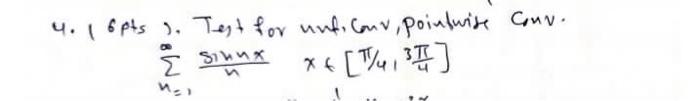 4. ( 6pts ). Test for unf. Conv, pointwise Conv.
∞
Σ sin nx / n    x ∈ [π/4, 3π/4]
n=1